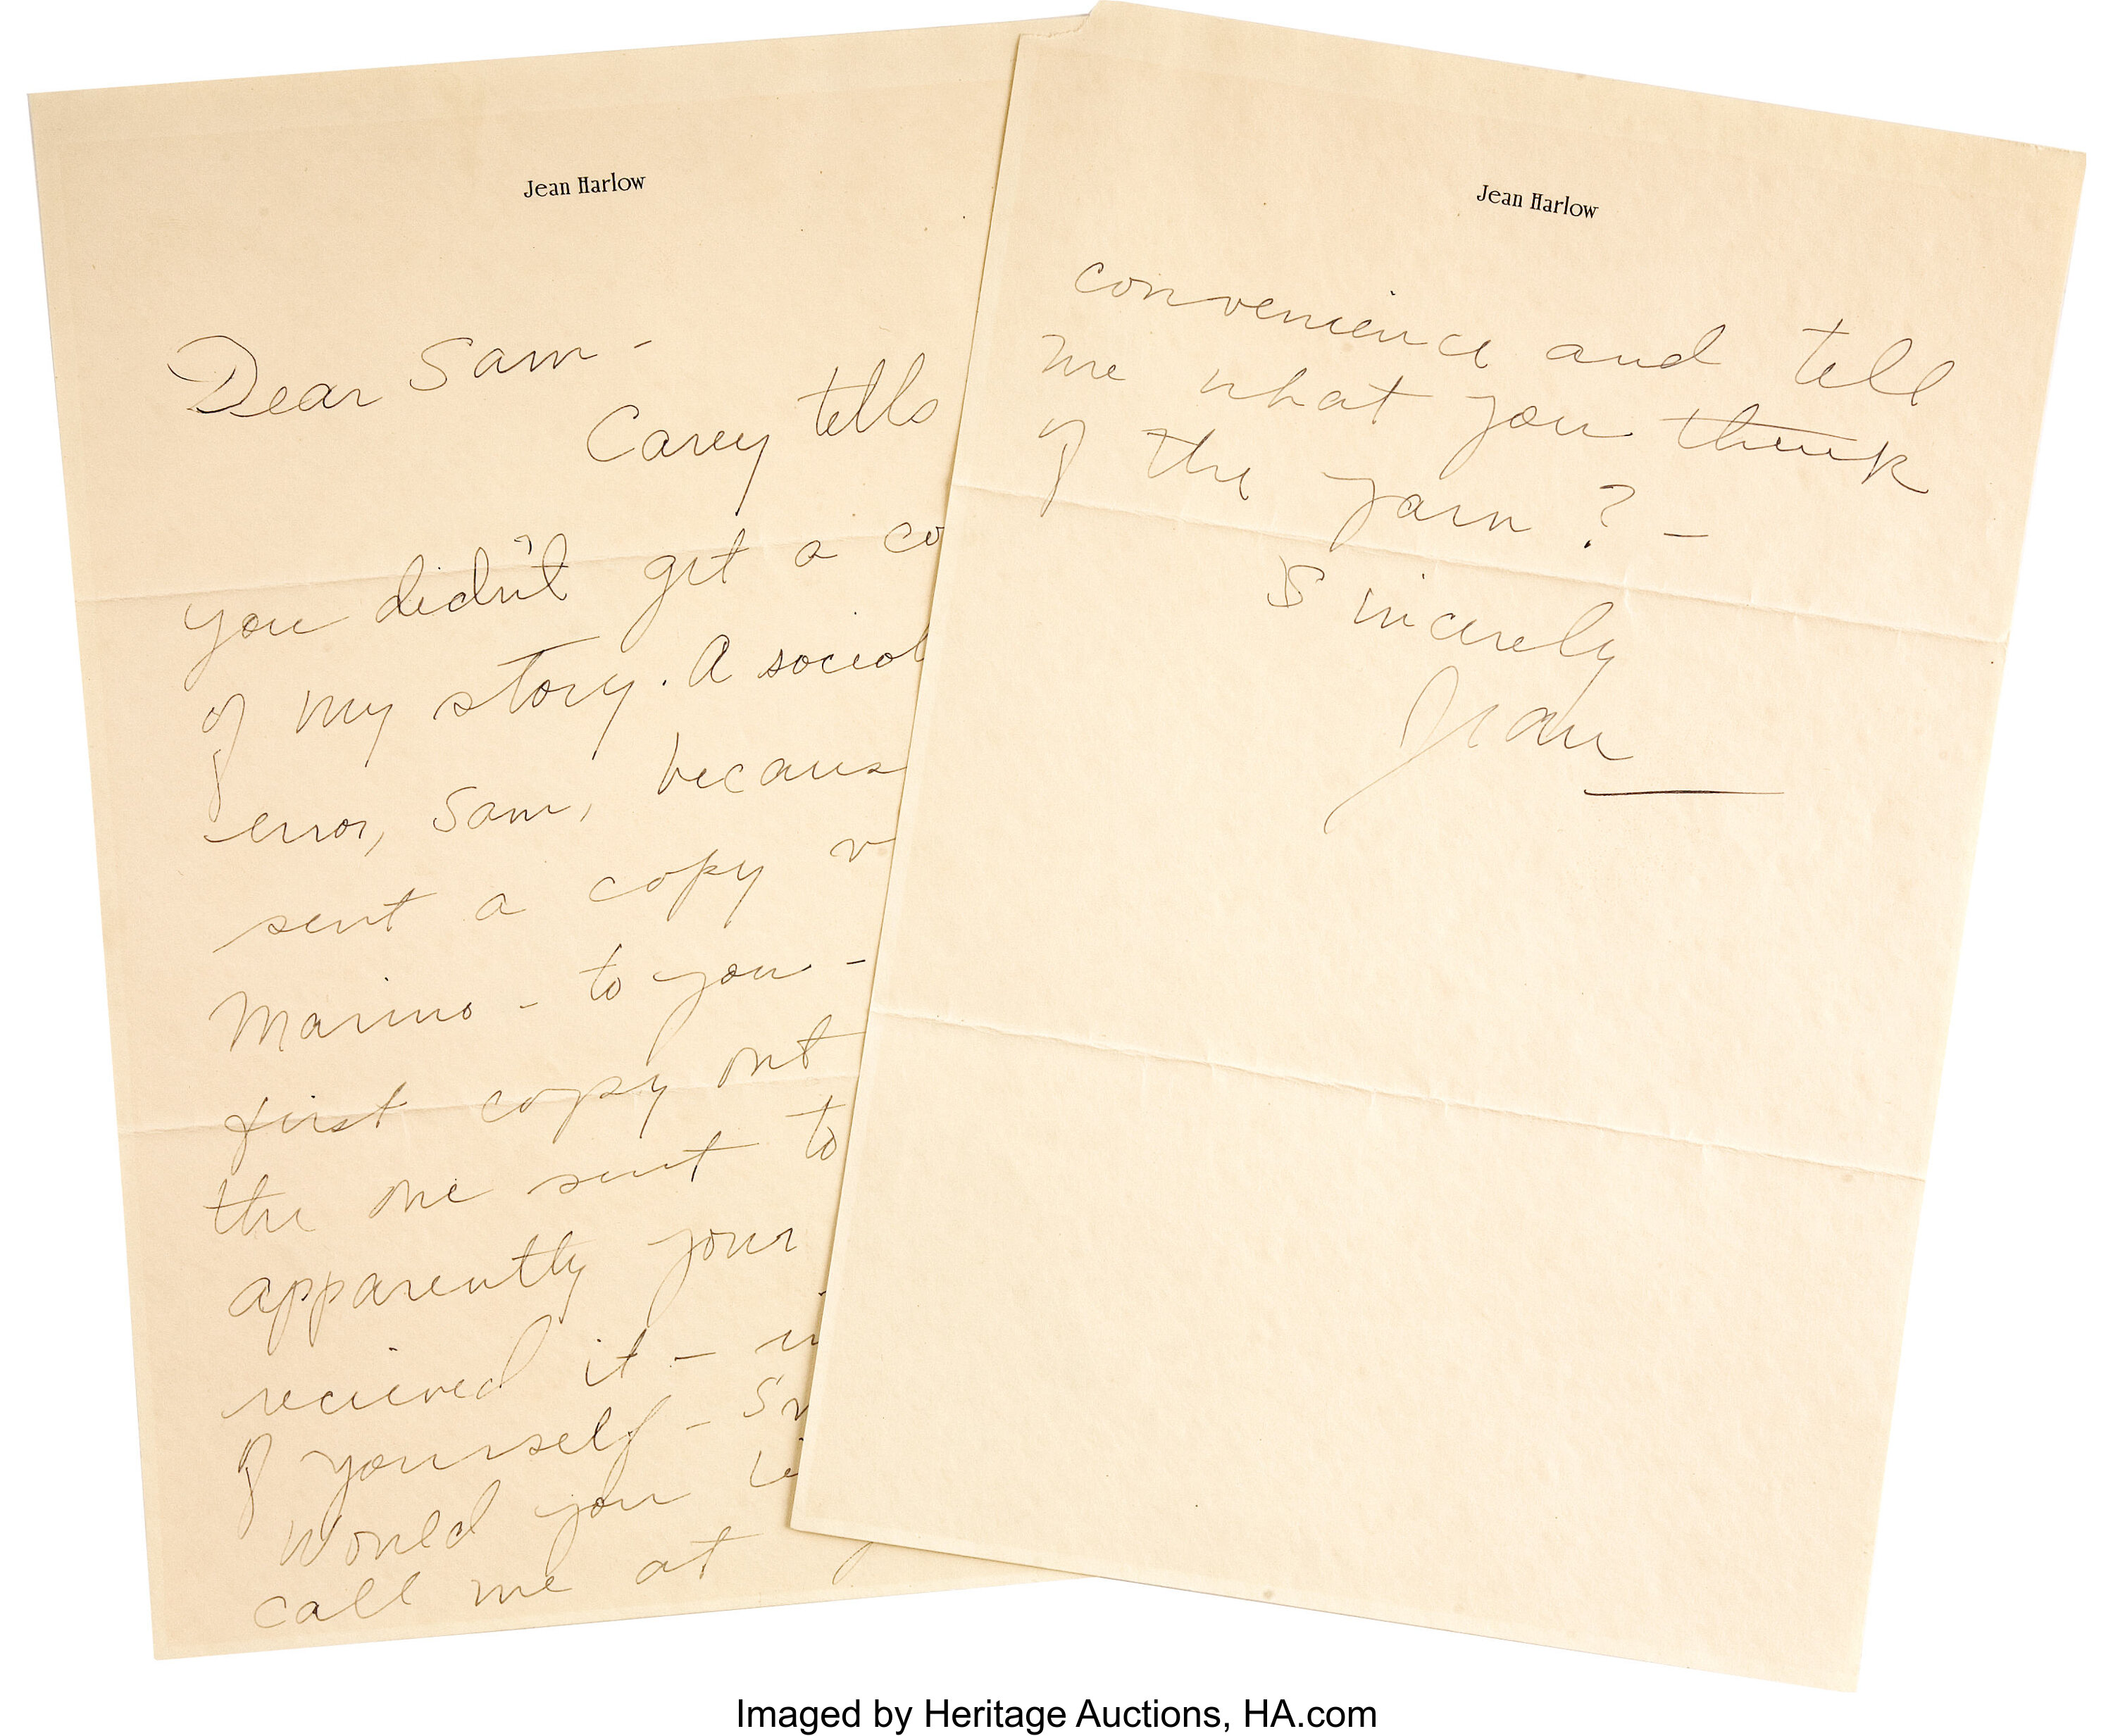 Jean Harlow
Dear Sam -
Carey tells
you didn't get a co
of my story. A social
error, Sam, becaus
sent a copy
Marino - to you -
first copy out
the one sent to
apparently your
recieved it -
of yourself -
Would you
call me at
Jean Harlow
convenience and tell
me what you think
of the yarn? -
Sincerely
Jean
Imaged by Heritage Auctions, HA.com